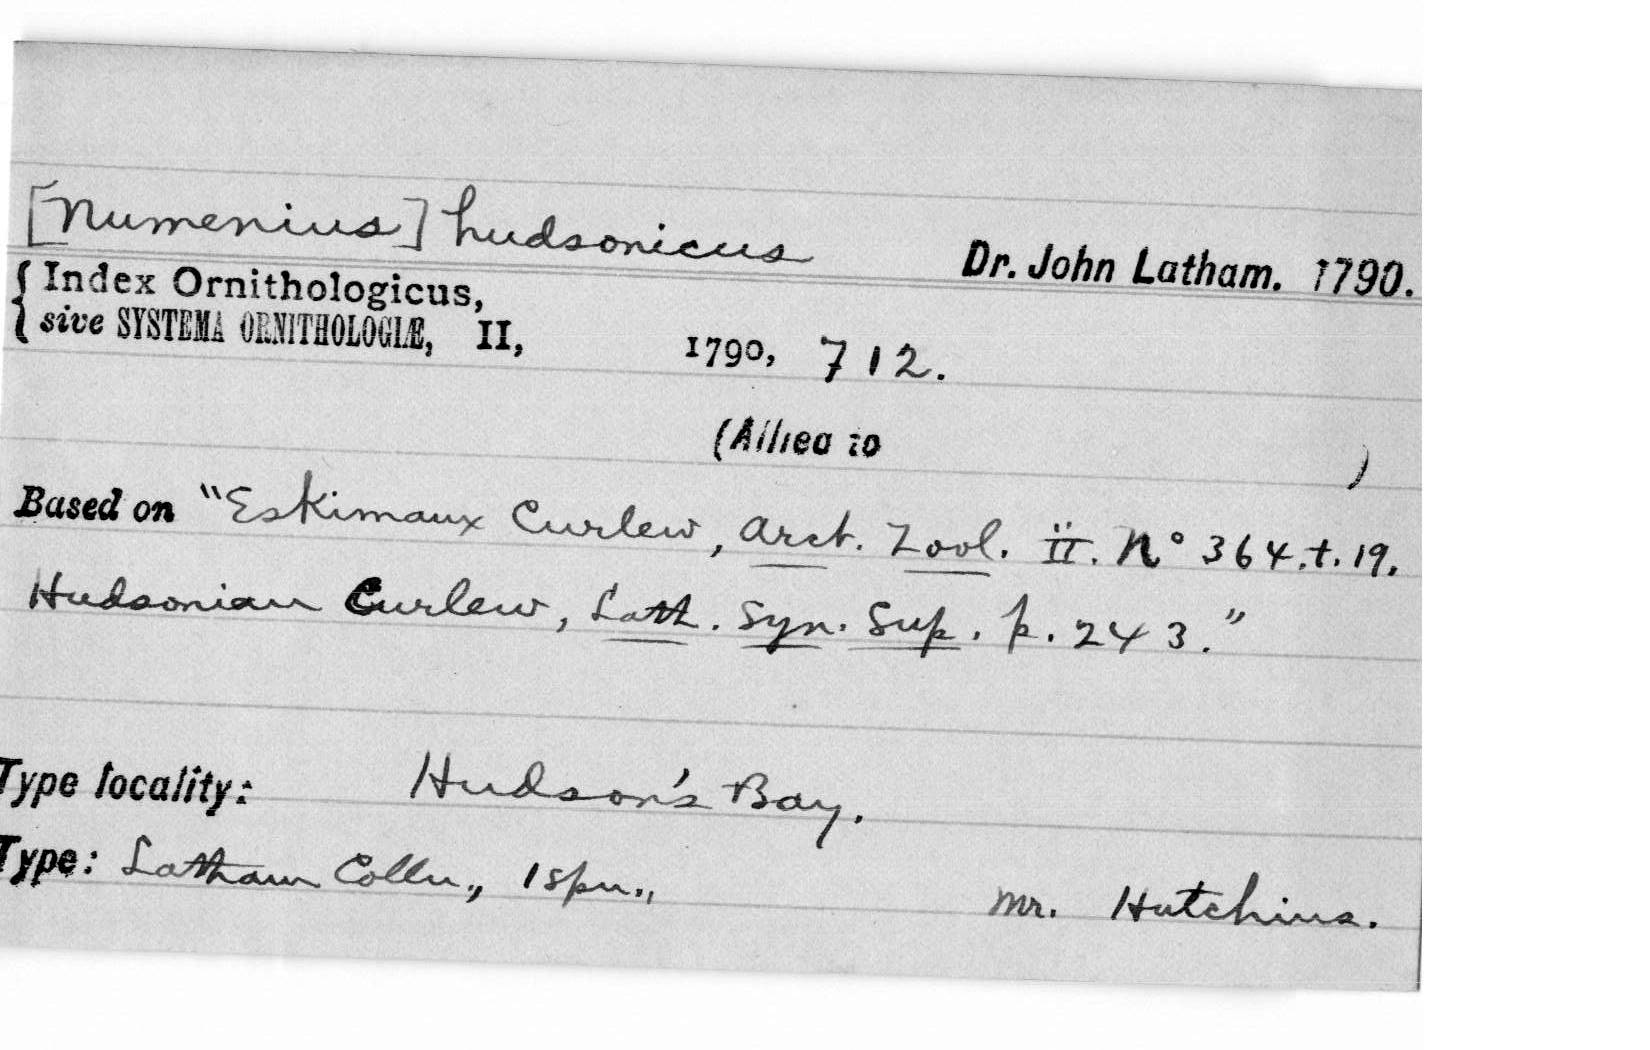 [Numenius] hudsonicus Dr. John Latham. 1790.
{ Index Ornithologicus,
sive SYSTEMA ORNITHOLOGIÆ, II, 1790, 712.
(Allied to )
Based on "Eskimaux Curlew, Arct. Zool. ii. No 364. t. 19.
Hudsonian Curlew, Lath. Syn. Sup. p. 243."
Type locality: Hudson's Bay.
Type: Latham Colln., 1 spn., Mr. Hutchins.